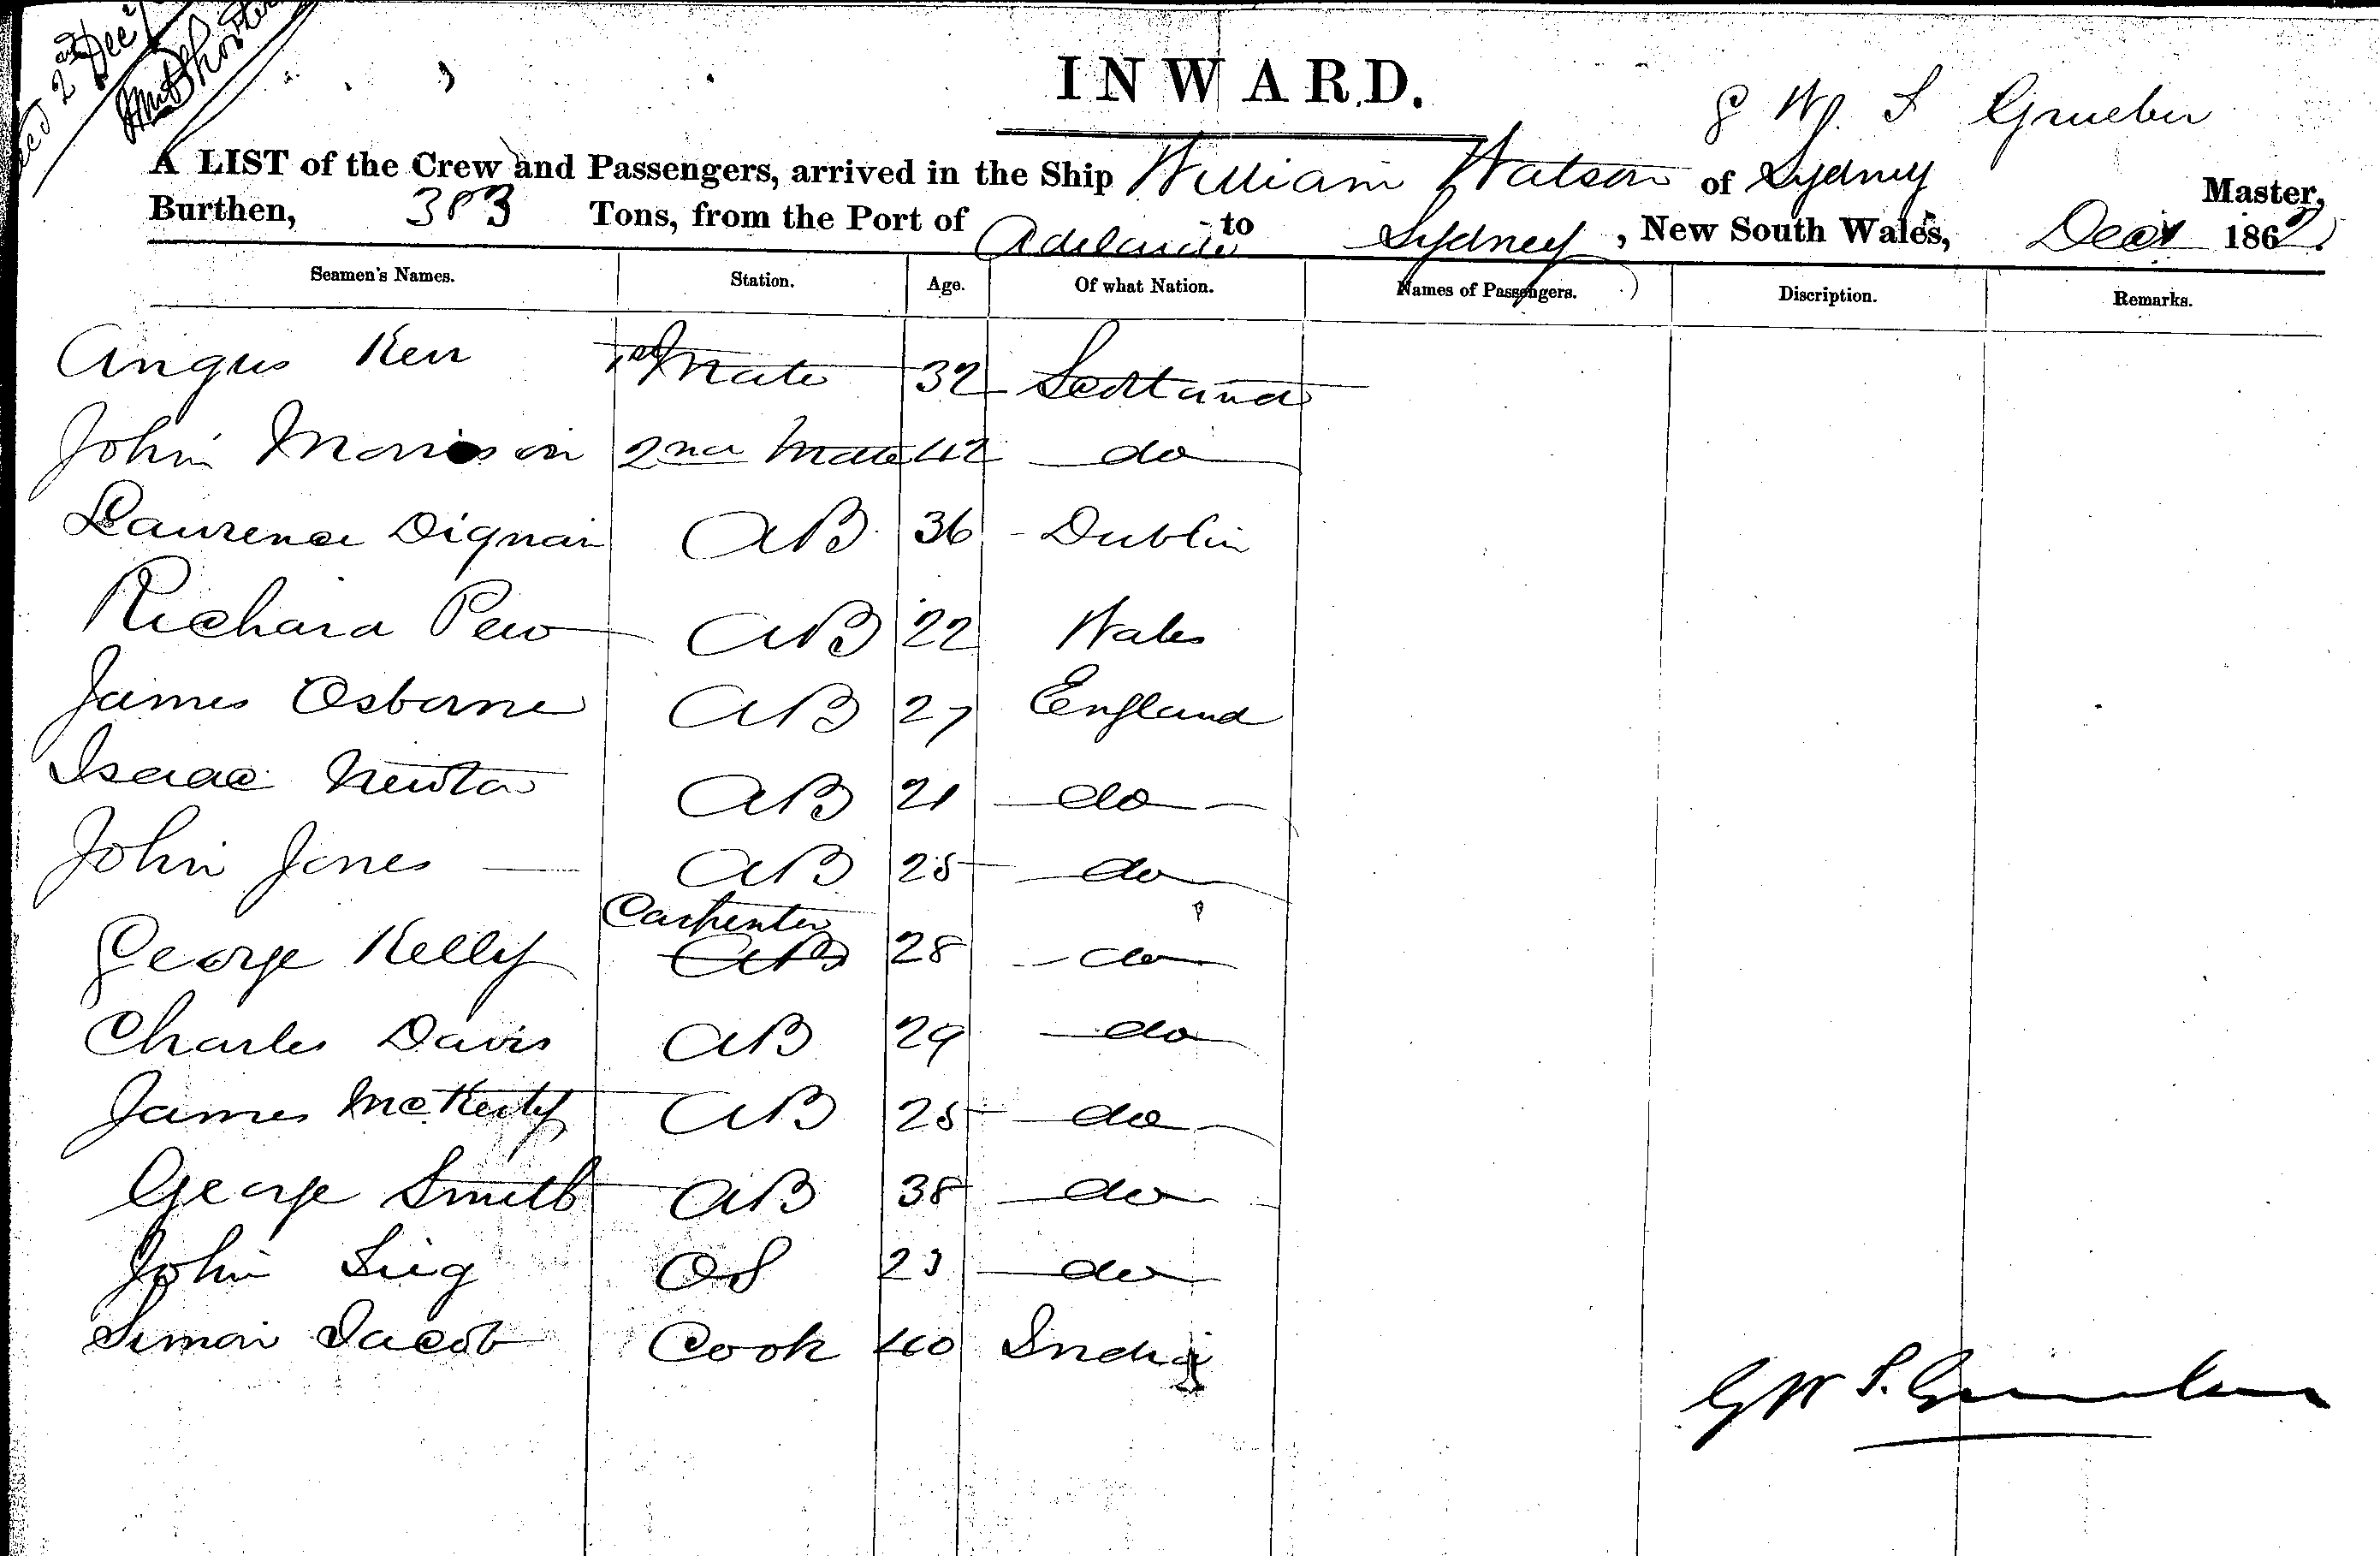 2nd Dec
INWARD.
G W. S Grueber
A LIST of the Crew and Passengers, arrived in the Ship William Watson of Sydney Master,
Burthen, 383 Tons, from the Port of Adelaide to Sydney, New South Wales, Decr 1862.
Seamen's Names. Station. Age. Of what Nation. Names of Passengers. Discription. Remarks.
Angus Kerr 1st Mate 32 Scotland
John Morrison 2nd Mate 42 do
Lawrence Dignan AB 36 - Dublin
Richard Pew AB 22 Wales
James Osborne AB 27 England
Isaac Newton AB 21 do
John Jones AB 25 do
Carpenter
George Kelly AB 28 do
Charles Davis AB 29 do
James McKerly AB 25 do
George Smith AB 38 do
John Sieg OS 23 do
Simon Jacob Cook 40 India
G W S. Grueber